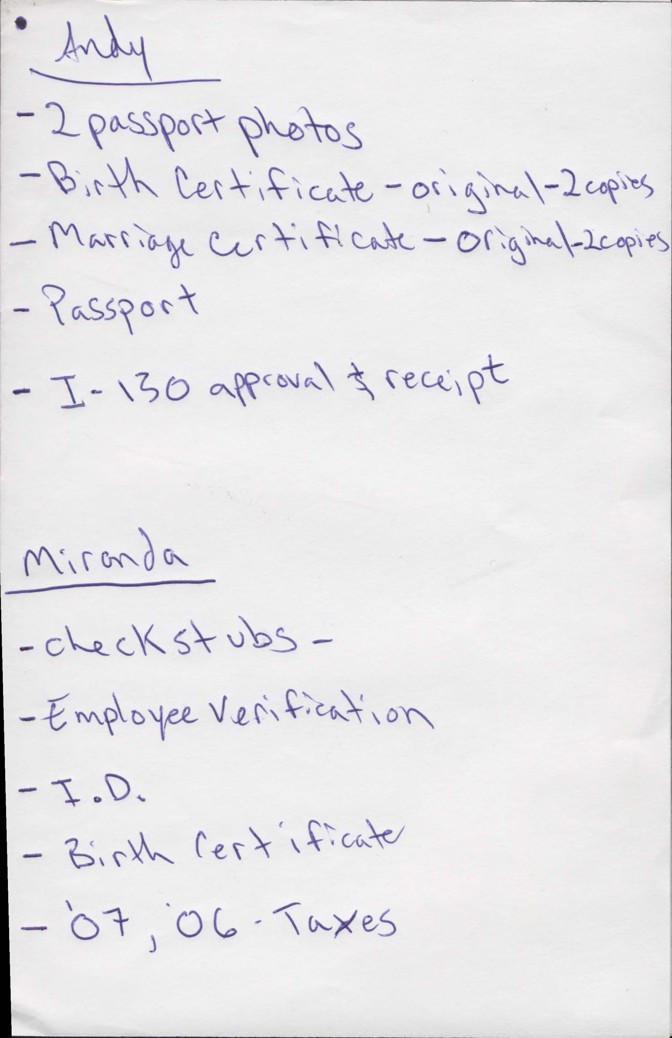 Andy
- 2 passport photos
- Birth Certificate - original - 2 copies
- Marriage Certificate - Original - 2 copies
- Passport
- I-130 approval & receipt
Miranda
- checkstubs -
- Employee Verification
- I.D.
- Birth Certificate
- '07, '06 - Taxes